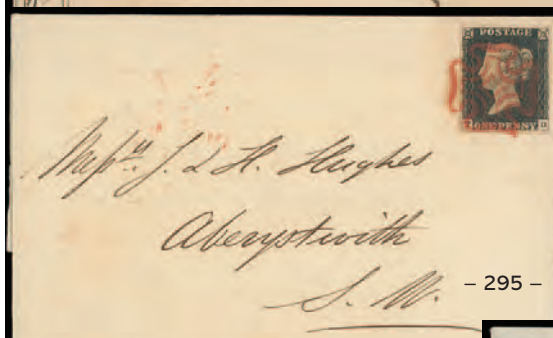 POSTAGE
ONE PENNY
Messrs. J. & H. Hughes
Aberystwith
S. W.
– 295 –